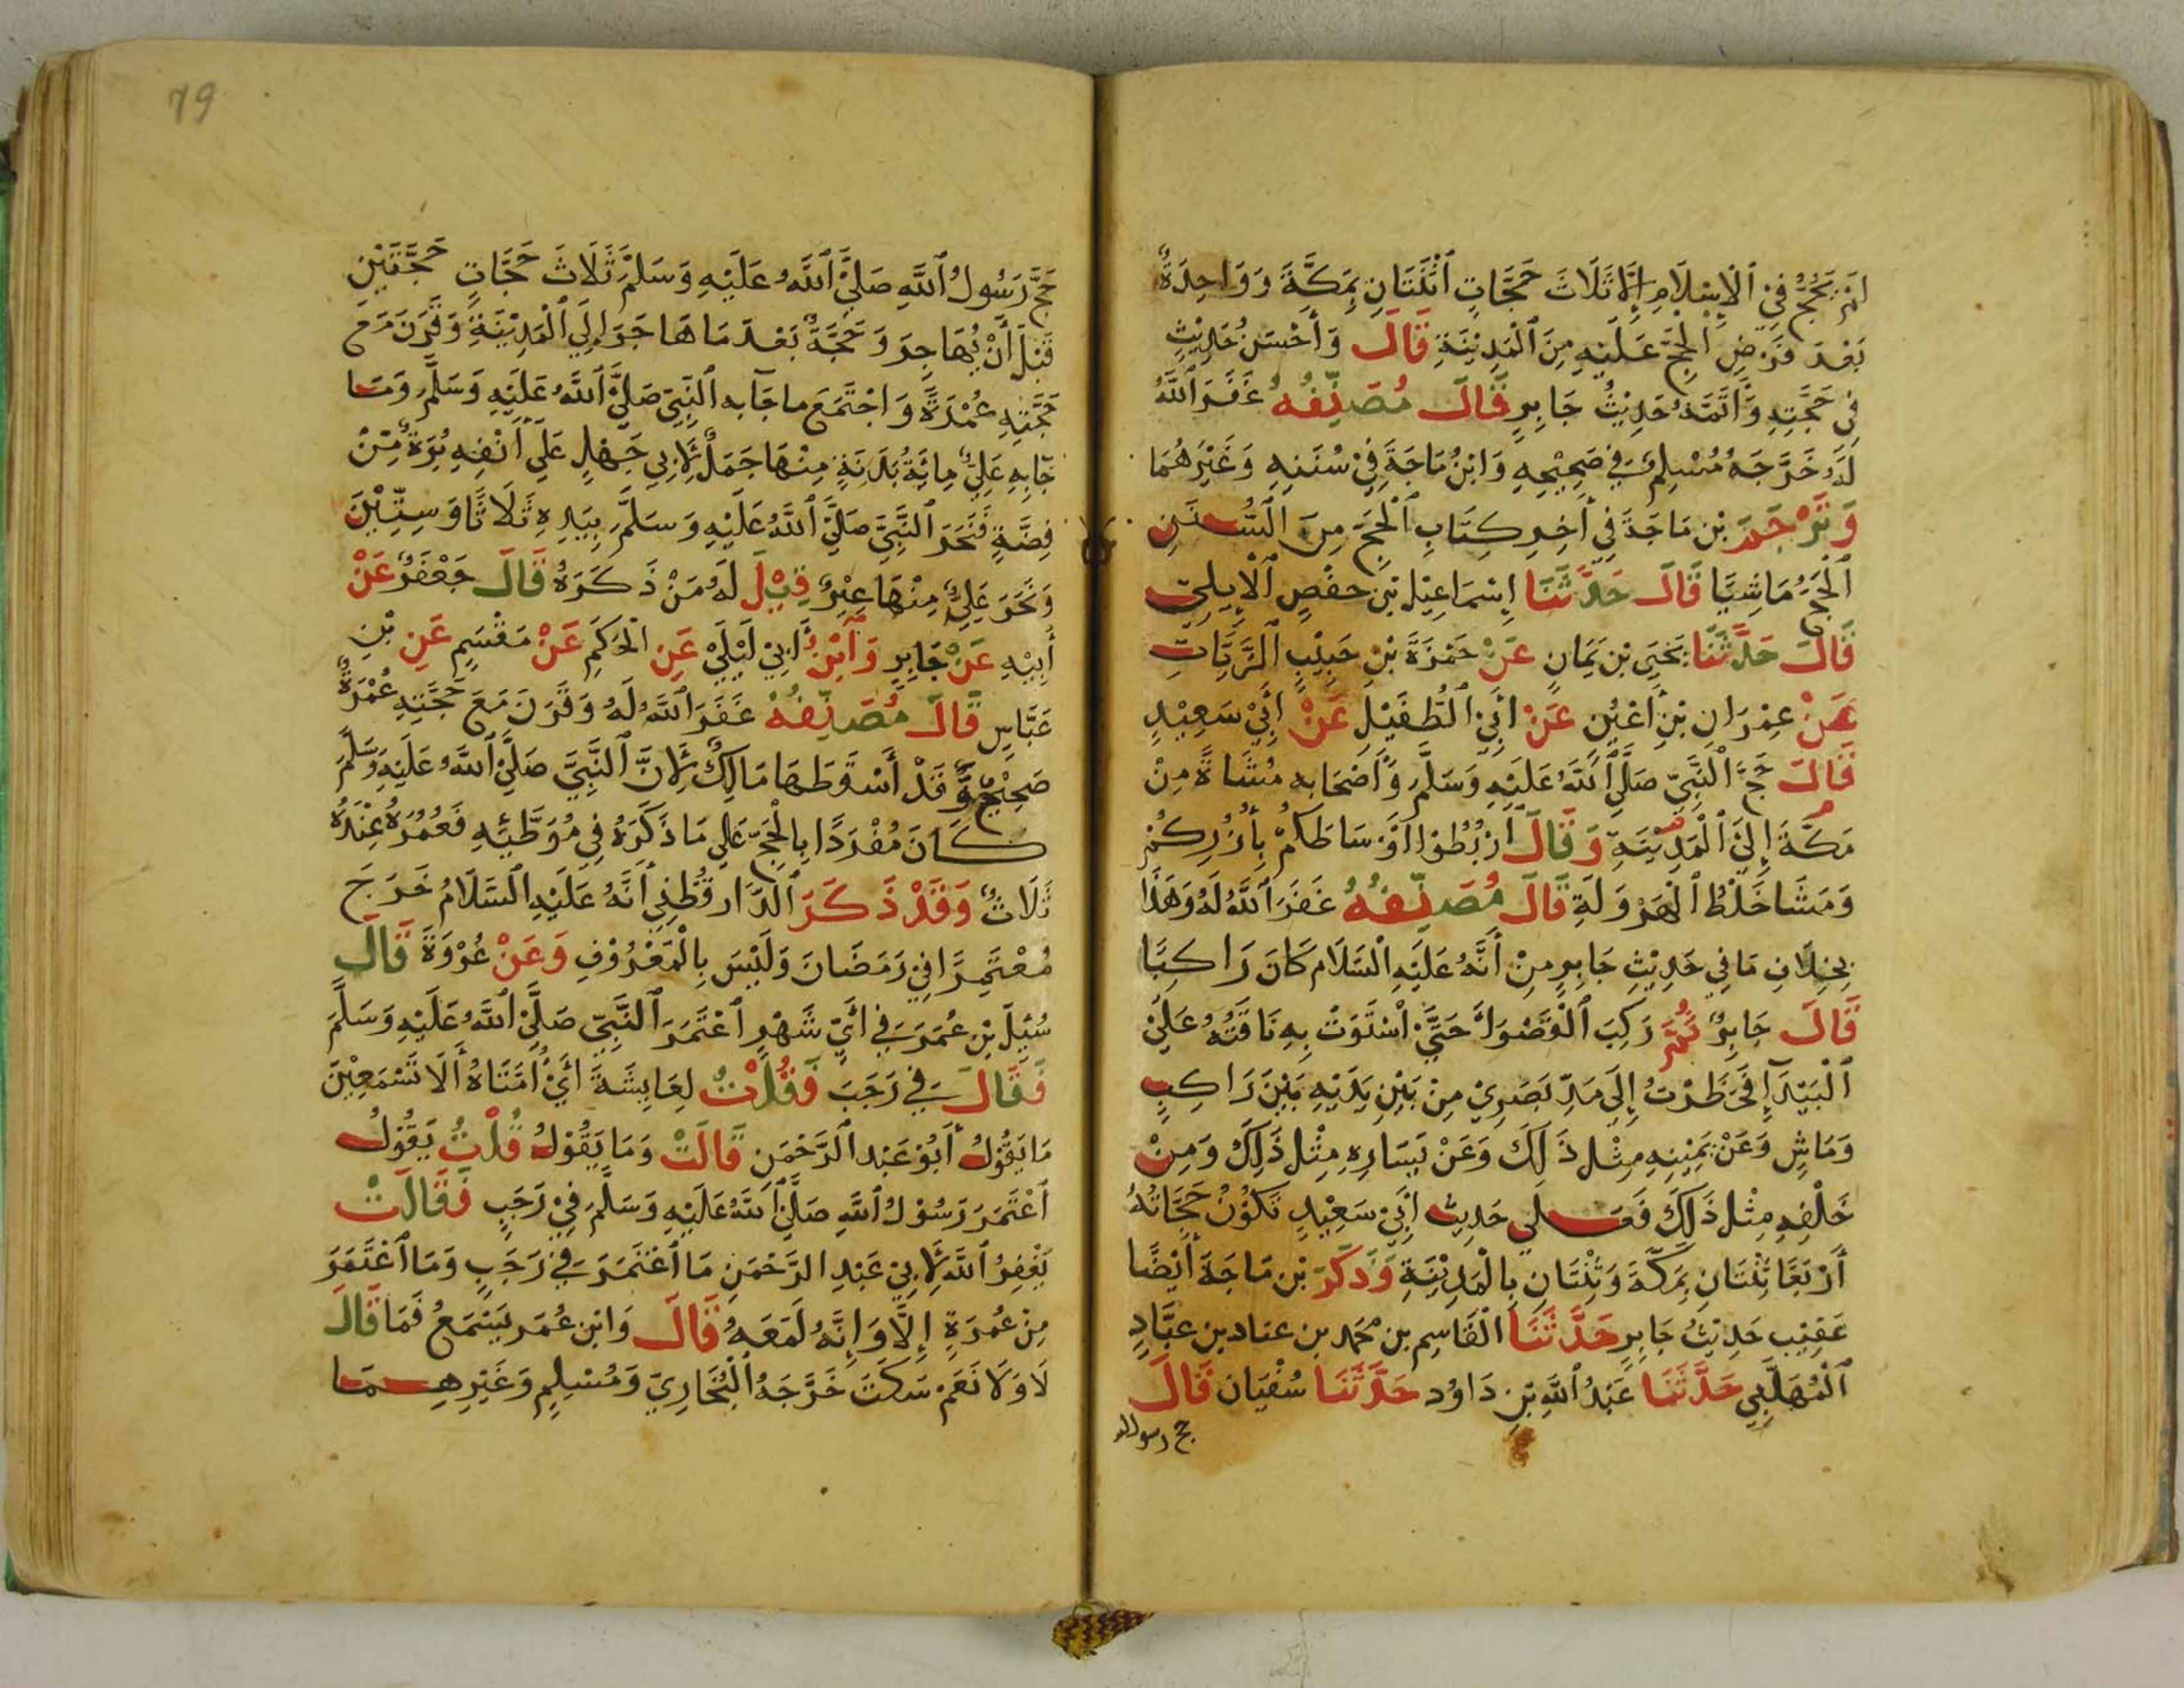 لَمْ يَحُجَّ فِيْ ٱلْاِسْلَامِ إِلَّا ثَلَاثَ حَجَّاتٍ ٱثْنَتَانِ بِمَكَّةَ وَوَاحِدَةٌ
بَعْدَ فَرْضِ الْحَجِّ عَلَيْهِ مِنَ ٱلْمَدِيْنَةِ قَالَ وَأَحْسَنُ حَدِيْثٍ
فِي حَجَّتِهِ وَأَتَمَّهُ حَدِيْثُ جَابِرٍ قَالَ مُصَنِّفُهُ غَفَرَ ٱللَّهُ
لَهُ خَرَّجَهُ مُسْلِمٌ فِي صَحِيْحِهِ وَابْنُ مَاجَةَ فِيْ سُنَنِهِ وَغَيْرُهُمَا
وَتَرْجَمَ بْن مَاجَةَ فِي أَخِرِ كِتَابِ ٱلْحَجِّ مِنَ ٱلسُّنَنِ
ٱلْحَجُّ مَاشِيًا قَالَ حَدَّثَنَا إِسْمَاعِيْل بْنِ حَفْصٍ ٱلْأَيِلِيّ
قَالَ حَدَّثَنَا يَحْيَى بْن يَمَانٍ عَنْ حَمْزَةَ بْنِ حَبِيْبٍ ٱلزَّيَّاتِ
عَنْ عِمْرَانِ بْنِ أَعْيُنٍ عَنْ ابِيْ ٱلطُّفَيْلِ عَنْ أَبِيْ سَعِيْدٍ
قَالَ حَجَّ ٱلنَّبِيّ صَلَّىٰ ٱللَّهُ عَلَيْهِ وَسَلَّمَ وَأَصْحَابِه مُشَاةً مِنْ
مَكَّةَ إِلَىٰ ٱلْمَدِيْنَةِ وَقَالَ ارْبُطُوْا اوْسَاطَكُمْ بِأُزُرِكُمْ
وَمَشَا خَلْطُ ٱلْهَرْوَلَةِ قَالَ مُصَنِّفُهُ غَفَرَ ٱللَّهُ لَهُ وَهَذَا
بِخِلَافِ مَا فِي حَدِيْثِ جَابِرٍ مِنْ أَنَّهُ عَلَيْهِ ٱلسَّلَام كَانَ رَاكِبًا
قَالَ جَابِرٌ ثُمَّ رَكِبَ ٱلْقَصْوَاءَ حَتَّىٰ ٱسْتَوَتْ بِهِ نَاقَتُهُ عَلَىٰ
ٱلْبَيْدَآءِ فَنَظَرْتُ إِلَى مَدِّ بَصَرِيْ مِنْ بَيْنِ يَدَيْهِ بَيْنَ رَاكِبٍ
وَمَاشٍ وَعَنْ يَمِيْنِهِ مِثْل ذَلِكَ وَعَنْ يَسَارِهِ مِثْل ذَلِكَ وَمِنْ
خَلْفِهِ مِثْل ذَلِكَ فَعَلَى حَدِيث ابِيْ سَعِيْدٍ تَكُوْنُ حَجَّاتُهُ
أَرْبَعًا ثِنْتَانِ بِمَكَّةَ وَثِنْتَانِ بِالْمَدِيْنَةِ وَذَكَرَ بْن مَاجَةَ أَيْضًا
عَقِيْب حَدِيْثُ جَابِرٍ حَدَّثَنَا ٱلْقَاسِم بن محمد بن عباد بن عبَّادٍ
ٱلْمُهَلَّبِي حَدَّثَنَا عَبْدُ ٱللَّهِ بْنِ دَاوُد حَدَّثَنَا سُفْيَان قَالَ
حج رسول الله
79
حَجَّ رَسُولُ ٱللَّهِ صَلَّىٰ ٱللَّهُ عَلَيْهِ وَسَلَّمَ ثَلَاثَ حَجَّاتٍ حَجَّتَيْنِ
قَبْلَ أَنْ يُهَاجِرَ وَحَجَّةً بَعْدَ مَا هَاجَرَ إِلَي ٱلْمَدِيْنَةِ وَقَرَنَ مَعَ
حَجَّتِهِ عُمْرَةً وَاجْتَمَعَ ما جَآبه ٱلنَّبِيّ صَلَّىٰ ٱللَّهُ عَلَيْهِ وَسَلَّمَ وَمَا
جَابِهِ عَلِيٌّ مِائَةُ بَدَنَةٍ مِنْهَا جَمَلٌ لِأَبِي جَهْلٍ عَلَىٰ أَنْفِهِ بُرَةٌ مِنْ
فِضَّةٍ فَنَحَرَ ٱلنَّبِيَّ صَلَّىٰ ٱللَّهُ عَلَيْهِ وَسَلَّمَ بِيَدِهِ ثَلَاثًا وَسِتِّيْنَ
وَنَحَرَ عَلِيٌّ مِنْهَا غَيْرُ قِيْلَ لَهُ مَنْ ذَكَرَهُ قَالَ جَعْفَرٌ عَنْ
أَبِيْهِ عَنْ جَابِرٍ وَٱبْنُ أَبِيْ لَيْلَىٰ عَنِ الْحَكَمِ عَنْ مَقْسَمٍ عَنِ بْنِ
عَبَّاسٍ قَالَ مُصَنِّفُهُ غَفَرَ ٱللَّهُ لَهُ وَقَرَنَ مَعَ حَجَّتِهِ عُمْرَةٌ
صَحِيْحٌ وَقَدْ أَسْقَطَهَا مَالِكٌ لِأَنَّ ٱلنَّبِيَّ صَلَّىٰ ٱللَّهُ عَلَيْهِ وَسَلَّمَ
كَانَ مُفْرَدًا بِالْحَجِّ عَلَي مَا ذَكَرَهُ فِي مُوَطَّئِهِ فَعُمُرَهُ عِنْدَهُ
ثَلَاثٌ وَقَدْ ذَكَرَ ٱلدَّارقُطْنِي أَنَّهُ عَلَيْهِ ٱلسَّلَامُ خَرَجَ
مُعْتَمِرًا فِيْ رَمَضَانَ وَلَيْسَ بِالْمَعْرُوْفِ وَعَنْ عُرْوَةَ قَالَ
سُئِلَ بْن عُمَرَ فِي أَيِّ شَهْرٍ ٱعْتَمَرَ ٱلنَّبِيّ صَلَّىٰ ٱللَّهُ عَلَيْهِ وَسَلَّمَ
فَقَالَ فِي رَجَبَ فَقُلْتُ لِعَايِشَةَ أَيْ أُمَّتَاهُ أَلَا تَسْمَعِيْنَ
مَا يَقُوْلُ أَبُوْ عَبْد ٱلرَّحْمَنِ قَالَتْ وَمَا يَقُوْلُ قُلْتُ يَقُوْلُ
ٱعْتَمَرَ رَسُوْلُ ٱللَّهِ صَلَّىٰ ٱللَّهُ عَلَيْهِ وَسَلَّمَ فِيْ رَجَبٍ فَقَالَتْ
يَغْفِرُ ٱللَّهُ لِأَبِيْ عَبْدِ ٱلرَّحْمَنِ مَا ٱعْتَمَرَ فِي رَجَبٍ وَمَا ٱعْتَمَرَ
مِنْ عُمْرَةٍ إِلَّا وَإِنَّهُ لَمَعَهُ قَالَ وَابْن عُمَر يَسْمَعُ فَمَا قَالَ
لَا وَلَا نَعَمْ سَكَتَ خَرَّجَهُ ٱلْبُخَارِيّ وَمُسْلِمٍ وَغَيْرِهِمَا